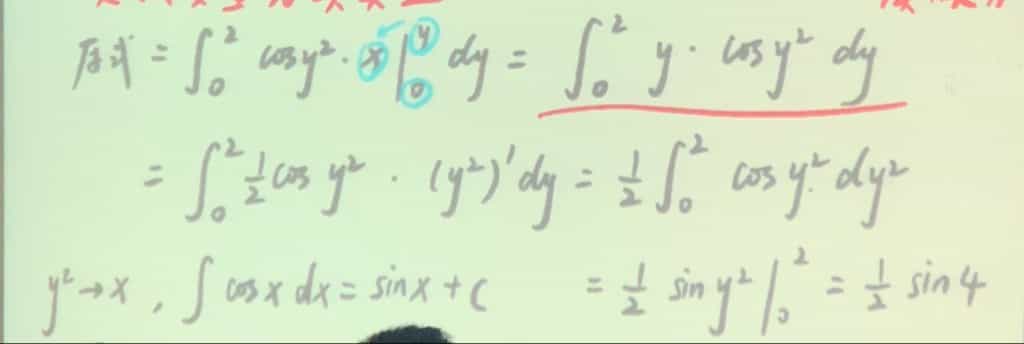 原式 = ∫₀² cos y² · x |₀^y dy = ∫₀² y · cos y² dy
= ∫₀² ½ cos y² · (y²)' dy = ½ ∫₀² cos y² dy²
y² → x , ∫ cos x dx = sin x + C = ½ sin y² |₀² = ½ sin 4